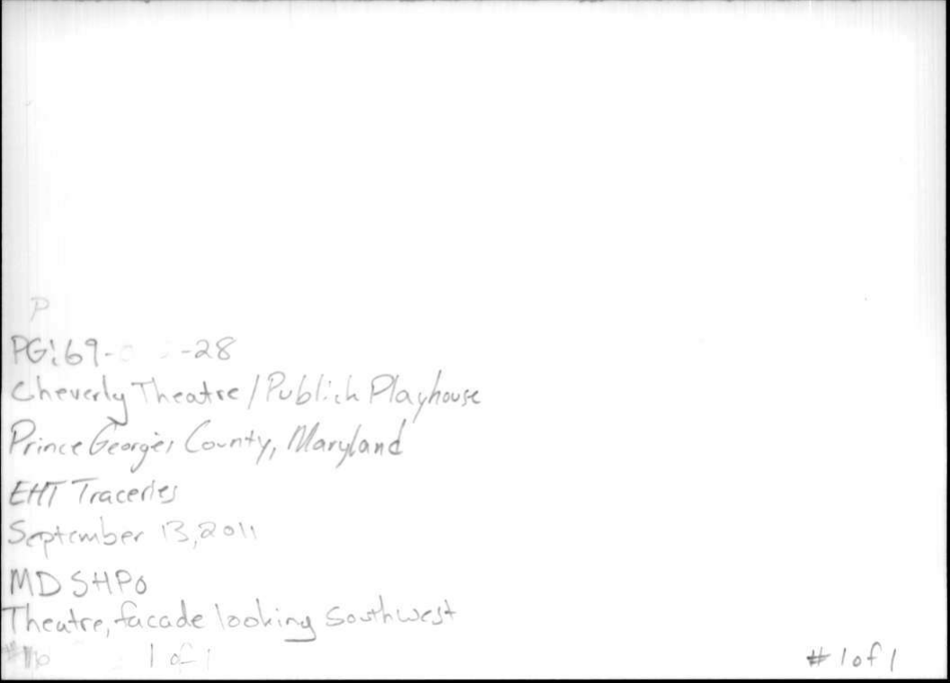 P
PG:69- -28
Cheverly Theatre/Publich Playhouse
Prince George's County, Maryland
EHT Traceries
September 13, 2011
MD SHPO
Theatre, facade looking southwest
1 of 1
# 1 of 1